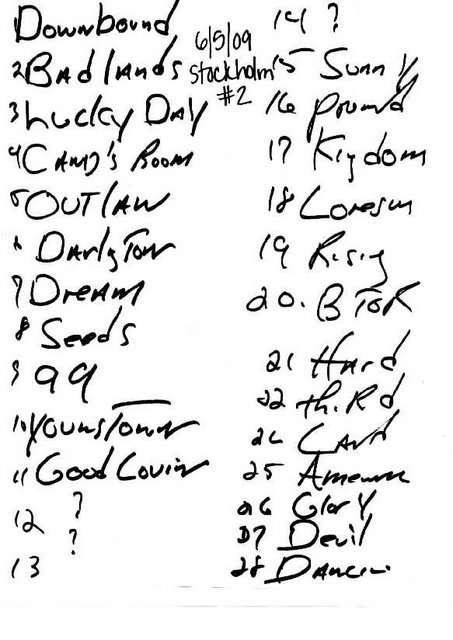 Downbound
2 Badlands
3 Lucky Day
4 Candy's Room
5 OUTLAW
Darlg Tow
7 Dream
8 Seeds
9 99
10 Younstown
11 Good Lovin
12 ?
13 ?
6/5/09
Stockholm
#2
14 ?
15 Sunny
16 Promd
17 Kigdom
18 Loneson
19 Rising
20. B To R
21 Hard
22 th. Rd
Land
25
26 Glory
27 Devil
28 Dancin